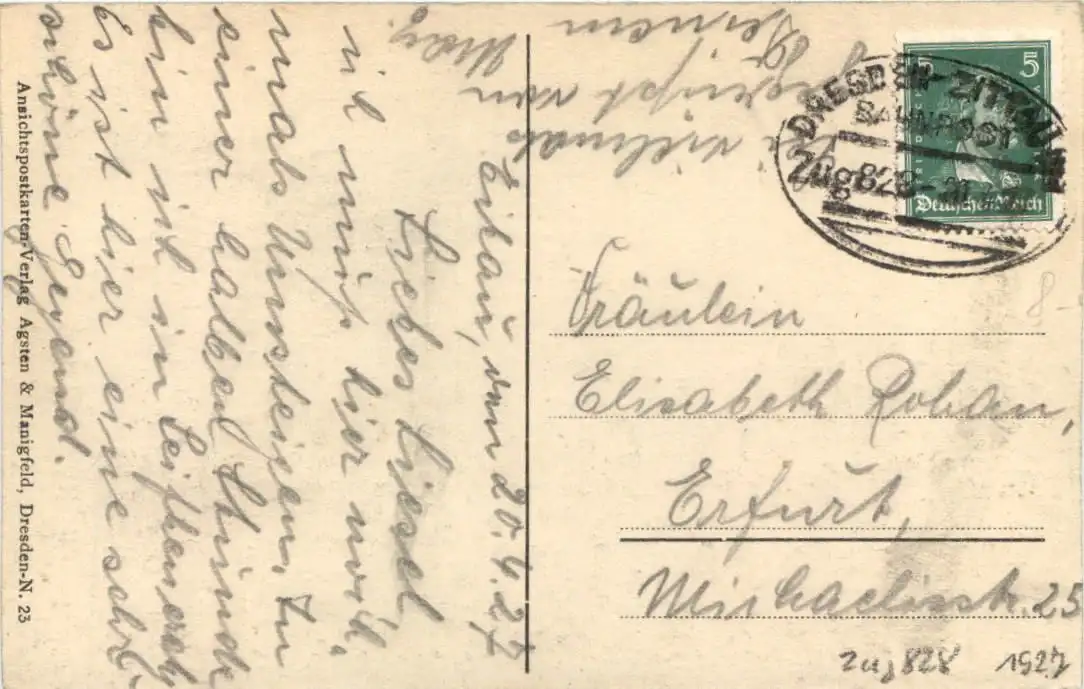 Eibau, vom 20.4.27
Liebes Liesel,
ich muß hier noch-
mals Umsteigen. In
einer halben Stunde
bin ich in Leifhenersdf
Es ist hier eine sehr
schöne Gegend.
Sei vielmals
gegrüßt von
Deinem
Ansichtspostkarten-Verlag Agsten & Manigfeld, Dresden-N. 23
5 5
Deutsches Reich
DRESDEN-ZITTAU
BAHNPOST
Zug 828
Fräulein
Elisabeth Roban,
Erfurt,
Michaelisstr. 25
8-
Zug 828 1927